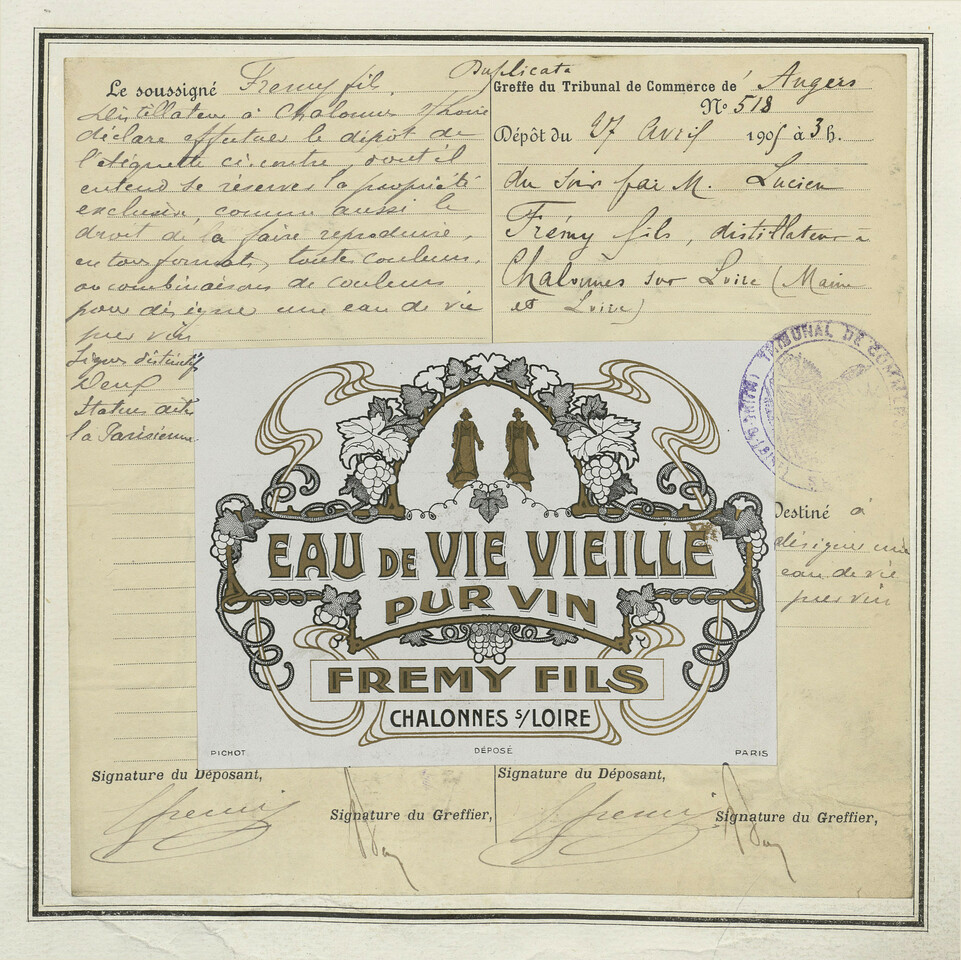 Duplicata
Le soussigné Fremy fils,
Distillateur à Chalonnes s/Loire
déclare effectuer le dépôt de
l'étiquette ci-contre, dont il
entend se réserver la propriété
exclusive, comme aussi le
droit de la faire reproduire,
en tous formats, toutes couleurs,
ou combinaisons de couleurs
pour désigner une eau de vie
pur vin
Signes distinctifs
Deux
Statues dites
la Parisienne
Greffe du Tribunal de Commerce de Angers
No 518
Dépôt du 27 Avril 1905 à 3 h.
du soir par M. Lucien
Frémy fils, distillateur à
Chalonnes sur Loire (Maine
et Loire)
TRIBUNAL DE COMMERCE
Destiné à
désigner une
eau de vie
pur vin
EAU DE VIE VIEILLE
PUR VIN
FREMY FILS
CHALONNES S/LOIRE
PICHOT
DÉPOSÉ
PARIS
Signature du Déposant,
Signature du Greffier,
Signature du Déposant,
Signature du Greffier,